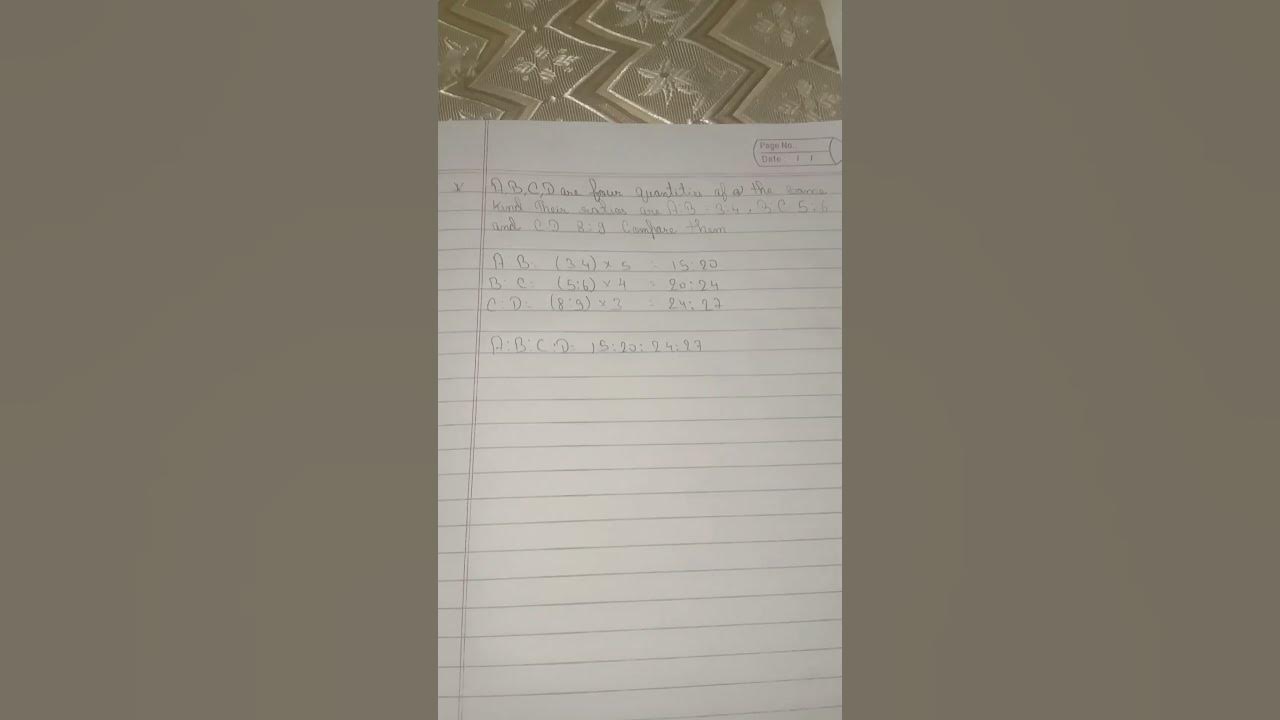 Page No.
Date / /
A, B, C, D are four quantities of the same
kind Their ratios are A:B = 3:4, B:C 5:6
and C:D 8:9 Compare them
A B = (3:4) × 5 = 15:20
B: C: (5:6) × 4 = 20:24
C: D: (8:9) × 3 = 24:27
A:B:C:D= 15:20:24:27